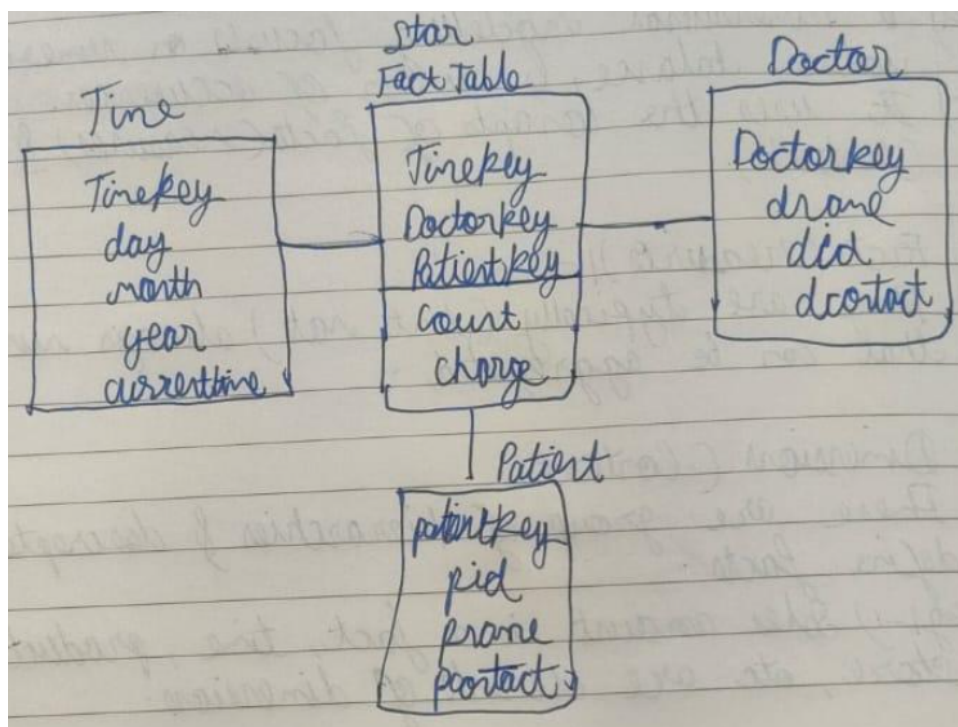 Star
Fact Table
Time
Timekey
day
month
year
currenttime
Timekey
Doctorkey
Patientkey
count
charge
Doctor
Doctorkey
drname
did
dcontact
Patient
patientkey
pid
pname
pcontact